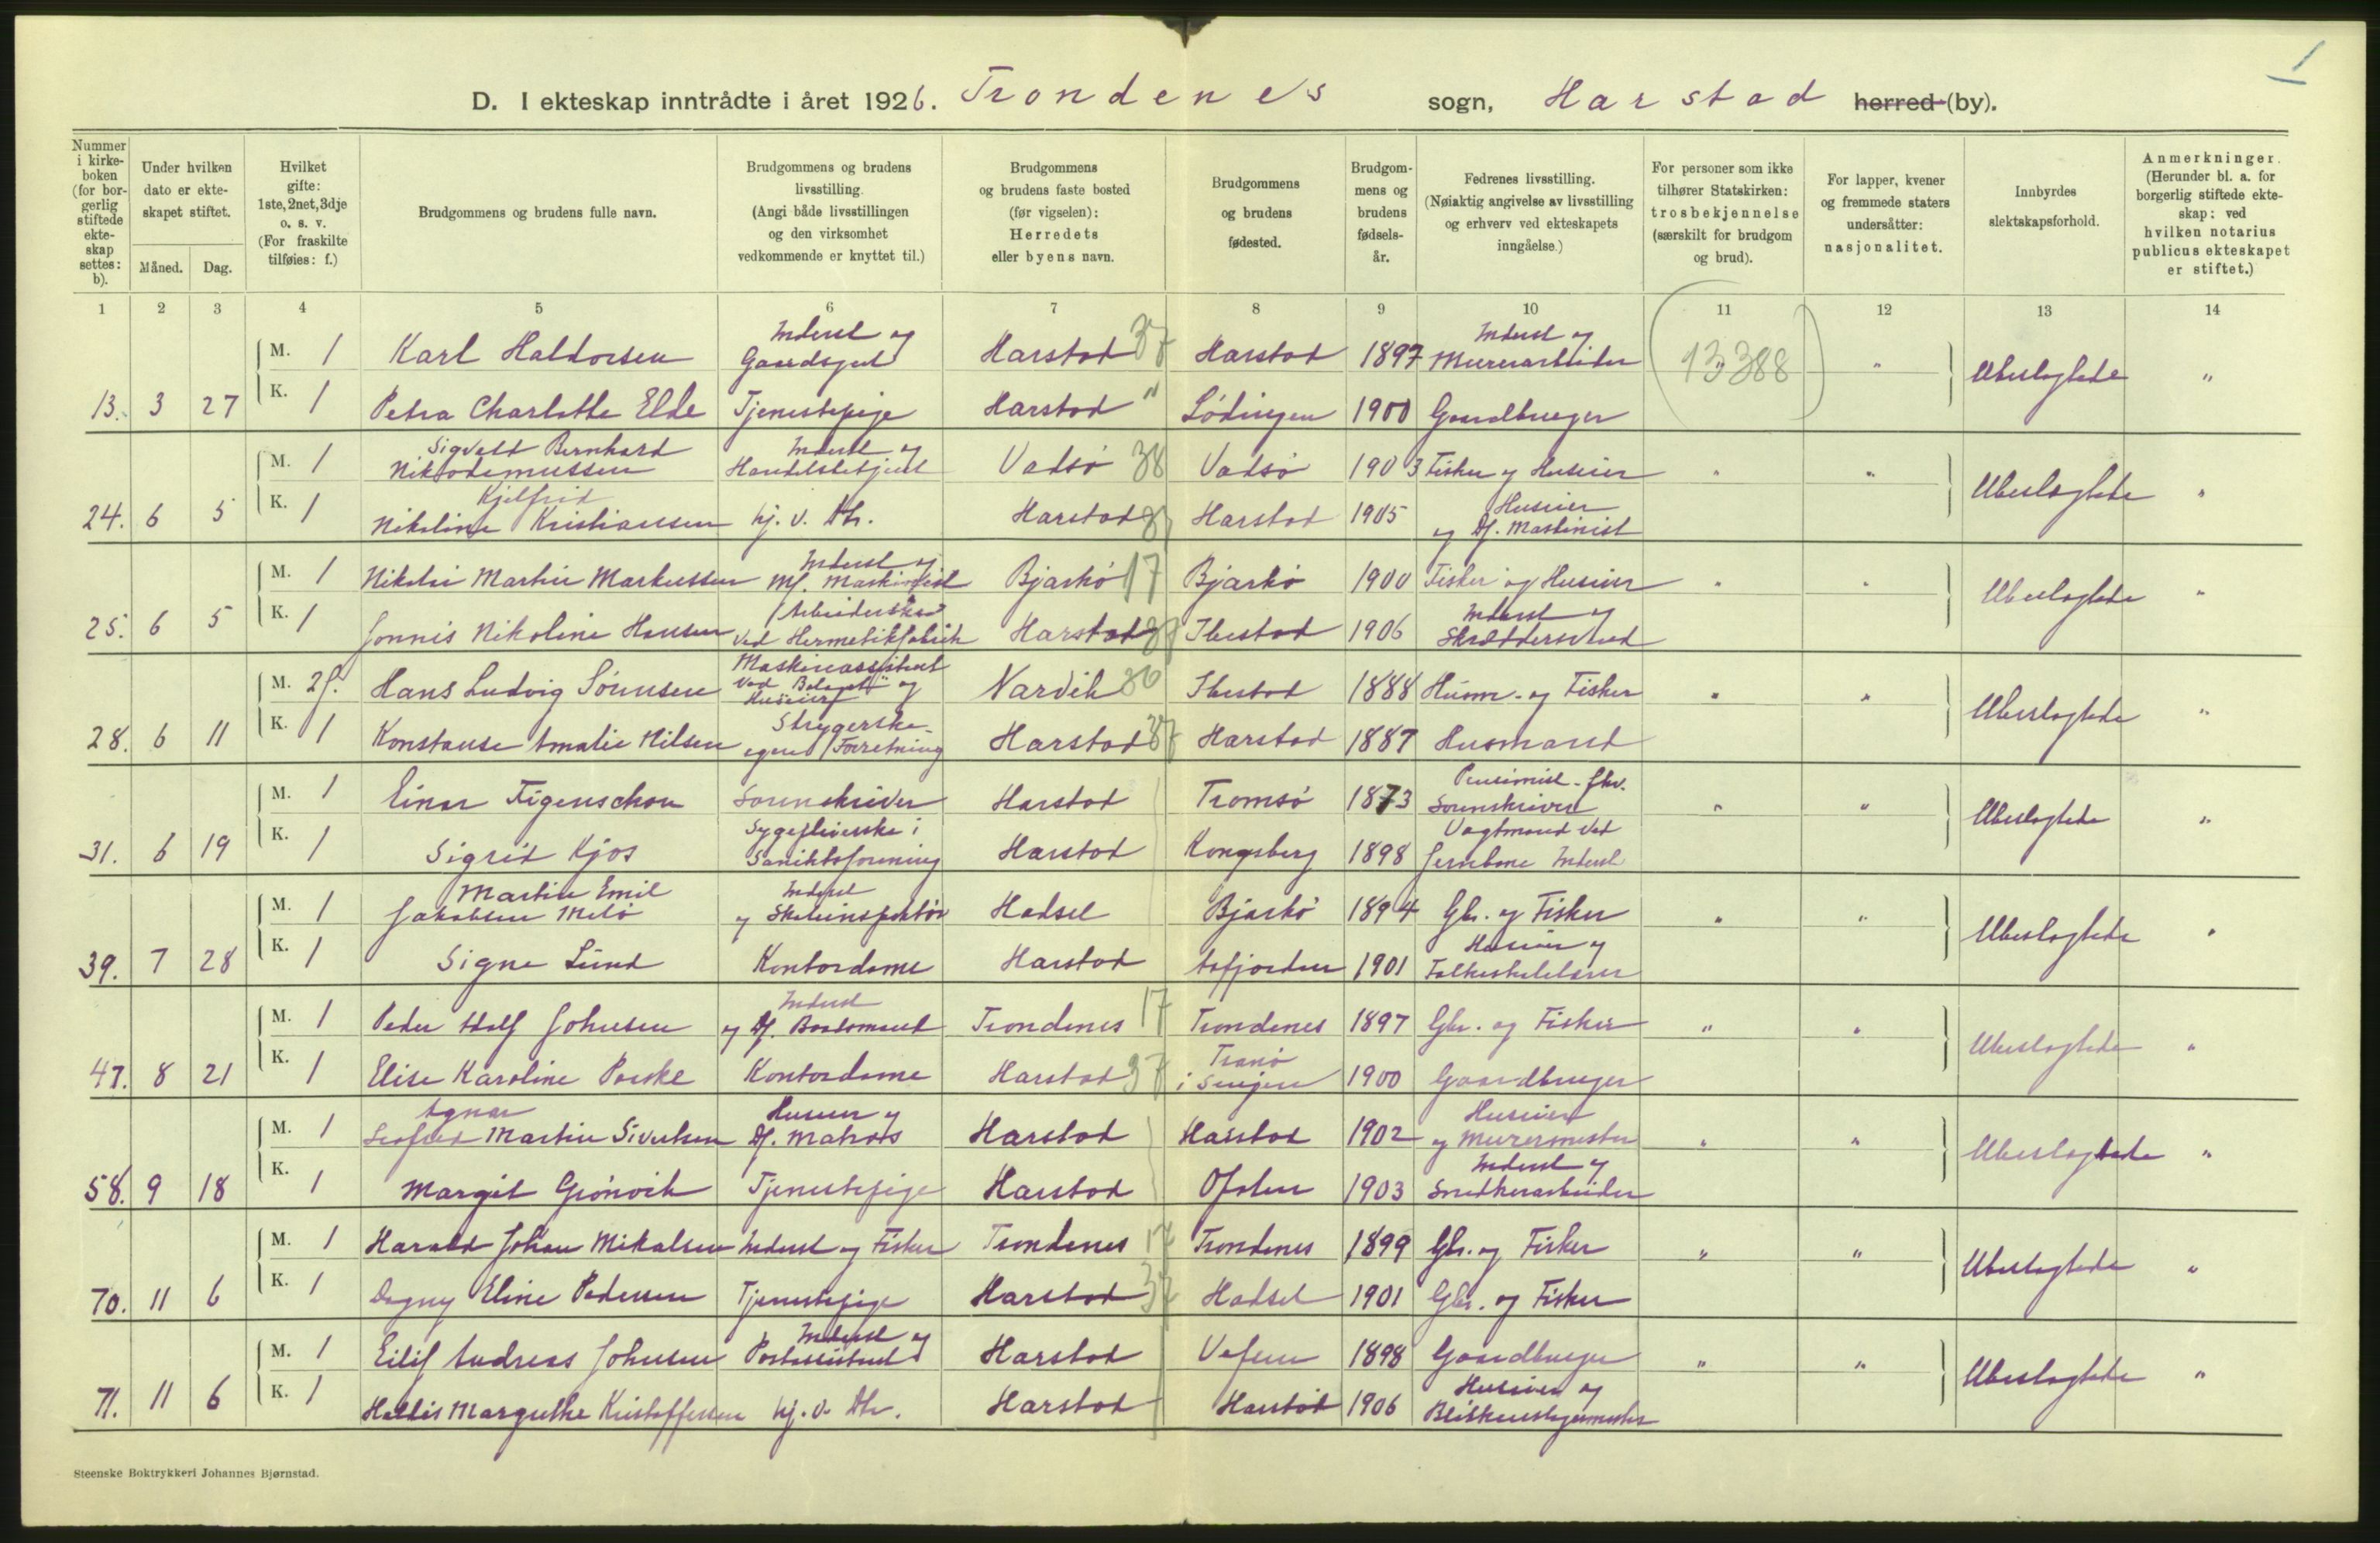 1
D. I ekteskap inntrådte i året 1926. Trondenes sogn, Harstad herred (by).
Nummer i kirkeboken (for borgerlig stiftede ekteskap settes: b).
Under hvilken dato er ekteskapet stiftet.
Måned. Dag.
Hvilket gifte: 1ste, 2net, 3dje o. s. v. (For fraskilte tilføies: f.)
Brudgommens og brudens fulle navn.
Brudgommens og brudens livsstilling. (Angi både livsstillingen og den virksomhet vedkommende er knyttet til.)
Brudgommens og brudens faste bosted (før vigselen): Herredets eller byens navn.
Brudgommens og brudens fødested.
Brudgommens og brudens fødselsår.
Fedrenes livsstilling. (Nøiaktig angivelse av livsstilling og erhverv ved ekteskapets inngåelse.)
For personer som ikke tilhører Statskirken: trosbekjennelse (særskilt for brudgom og brud).
For lapper, kvener og fremmede staters undersåtter: nasjonalitet.
Innbyrdes slektskapsforhold.
Anmerkninger. (Herunder bl. a. for borgerlig stiftede ekteskap: ved hvilken notarius publicus ekteskapet er stiftet.)
1 2 3 4 5 6 7 8 9 10 11 12 13 14
M. 1 Karl Haldorsen Inderst og Gaardsgut Harstad 37 Harstad 1897 Inderst og Murerarbeider 13388 " Ubeslagtede "
13. 3 27 K. 1 Petra Charlotte Elde Tjenestepige Harstad " Lödingen 1900 Gaardbruger
M. 1 Sigvald Bernhard Nikodemussen Inderst og Handelsbetjent Vadsö 38 Vadsö 1903 Fisker og Huseier " " Ubeslagtede "
24. 6 5 K. 1 Kjelfrid Nikoline Kristiansen hj. v. Dtr. Harstad 37 Harstad 1905 Huseier og Df. Maskinist
M. 1 Nikolai Martin Markussen Inderst og Mf. Maskinist Bjarkö 17 Bjarkö 1900 Fisker og Huseier " " Ubeslagtede "
25. 6 5 K. 1 Jonnis Nikoline Hansen Arbeiderske ved Hermetikfabrik Harstad 37 Ibestad 1906 Inderst og Skræddersvend
M. 2f. Hans Ludvig Sörensen Maskinassistent ved og Huseier Narvik 36 Ibestad 1888 Husm. og Fisker " " Ubeslagtede "
28. 6 11 K. 1 Konstanse Amalie Nilsen Strygerske egen Forretning Harstad 37 Harstad 1887 Husmand
M. 1 Einar Figenschou Sorenskriver Harstad Tromsö 1873 Pensionist fhv. Sorenskriver " " Ubeslagtede "
31. 6 19 K. 1 Sigrid Kjos Sygepleierske i Sanitetsforening Harstad Kongsberg 1898 Vagtmand ved Jernbane Inderst
M. 1 Martin Emil Jakobsen Melö Inderst og Skoleinspektör Hadsel Bjarkö 1894 Gbr. og Fisker " " Ubeslagtede "
39. 7 28 K. 1 Signe Lund Kontordame Harstad Aafjorden 1901 Huseier og Folkeskolelærer
M. 1 Peder Adolf Johnsen Inderst og Df. Baatsmand Trondenes 17 Trondenes 1897 Gbr. og Fisker " " Ubeslagtede "
47. 8 21 K. 1 Elise Karoline Kontordame Harstad 37 Tranö i Senjen 1900 Gaardbruger
M. 1 Agnar Martin Sivertsen Huseier og Df. Matros Harstad Harstad 1902 Huseier og Murermester " " Ubeslagtede "
58. 9 18 K. 1 Margit Grönvik Tjenestepige Harstad Ofoten 1903 Inderst og Snedkerarbeider
M. 1 Harald Johan Mikalsen Inderst og Fisker Trondenes 17 Trondenes 1899 Gbr. og Fisker " " Ubeslagtede "
70. 11 6 K. 1 Dagny Eline Pedersen Tjenestepige Harstad 37 Hadsel 1901 Gbr. og Fisker
M. 1 Eilif Andreas Johnsen Inderst og Postassistent Harstad Vefsen 1898 Gaardbruger " " Ubeslagtede "
71. 11 6 K. 1 Hallis Margrethe Kristoffersen hj. v. Dtr. Harstad Harstad 1906 Huseier og Blikkenslagermester
Steenske Boktrykkeri Johannes Bjørnstad.